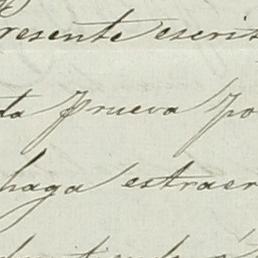 resente escrit
ta prueva po
haga estraer